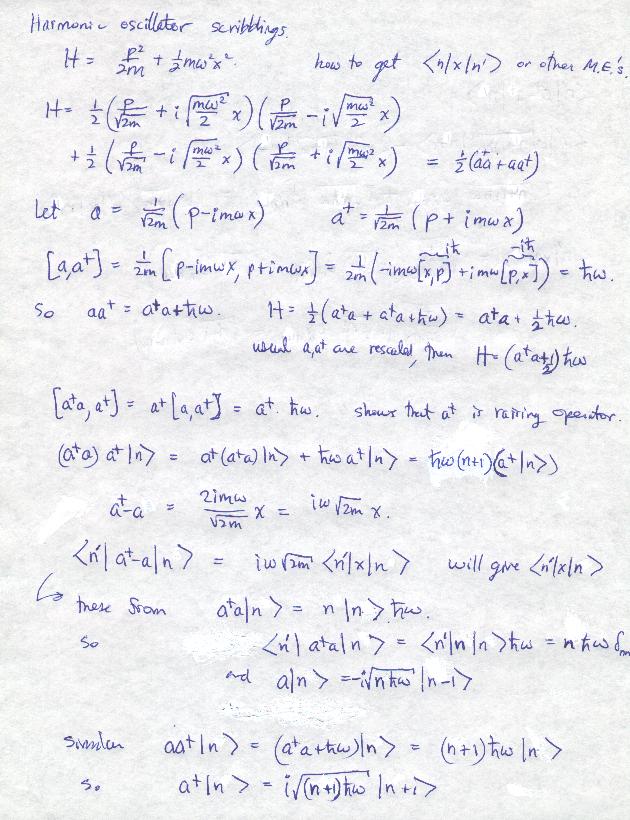 Harmonic oscillator scribblings.
H = p²/2m + ½mω²x². how to get ⟨n|x|n'⟩ or other M.E.'s.
H = ½(p/√2m + i√(mω²/2) x)(p/√2m − i√(mω²/2) x)
+ ½(p/√2m − i√(mω²/2) x)(p/√2m + i√(mω²/2) x) = ½(a†a + aa†)
Let a = 1/√2m (p − imωx) a† = 1/√2m (p + imωx)
[a,a†] = 1/2m [p−imωx, p+imωx] = 1/2m (−imω[x,p] + imω[p,x]) = ħω. iħ −iħ
So aa† = a†a + ħω. H = ½(a†a + a†a + ħω) = a†a + ½ħω.
usual a,a† are rescaled, then H = (a†a+½)ħω
[a†a, a†] = a†[a,a†] = a†·ħω. shows that a† is raising operator.
(a†a) a†|n⟩ = a†(a†a)|n⟩ + ħω a†|n⟩ = ħω(n+1)(a†|n⟩)
a†−a = 2imω/√2m x = iω√2m x.
⟨n'|a†−a|n⟩ = iω√2m ⟨n'|x|n⟩ will give ⟨n'|x|n⟩
↪ these from a†a|n⟩ = n|n⟩ħω.
so ⟨n'|a†a|n⟩ = ⟨n'|n|n⟩ħω = nħω δ
and a|n⟩ = −i√(nħω) |n−1⟩
Similar aa†|n⟩ = (a†a+ħω)|n⟩ = (n+1)ħω|n⟩
so a†|n⟩ = i√((n+1)ħω) |n+1⟩